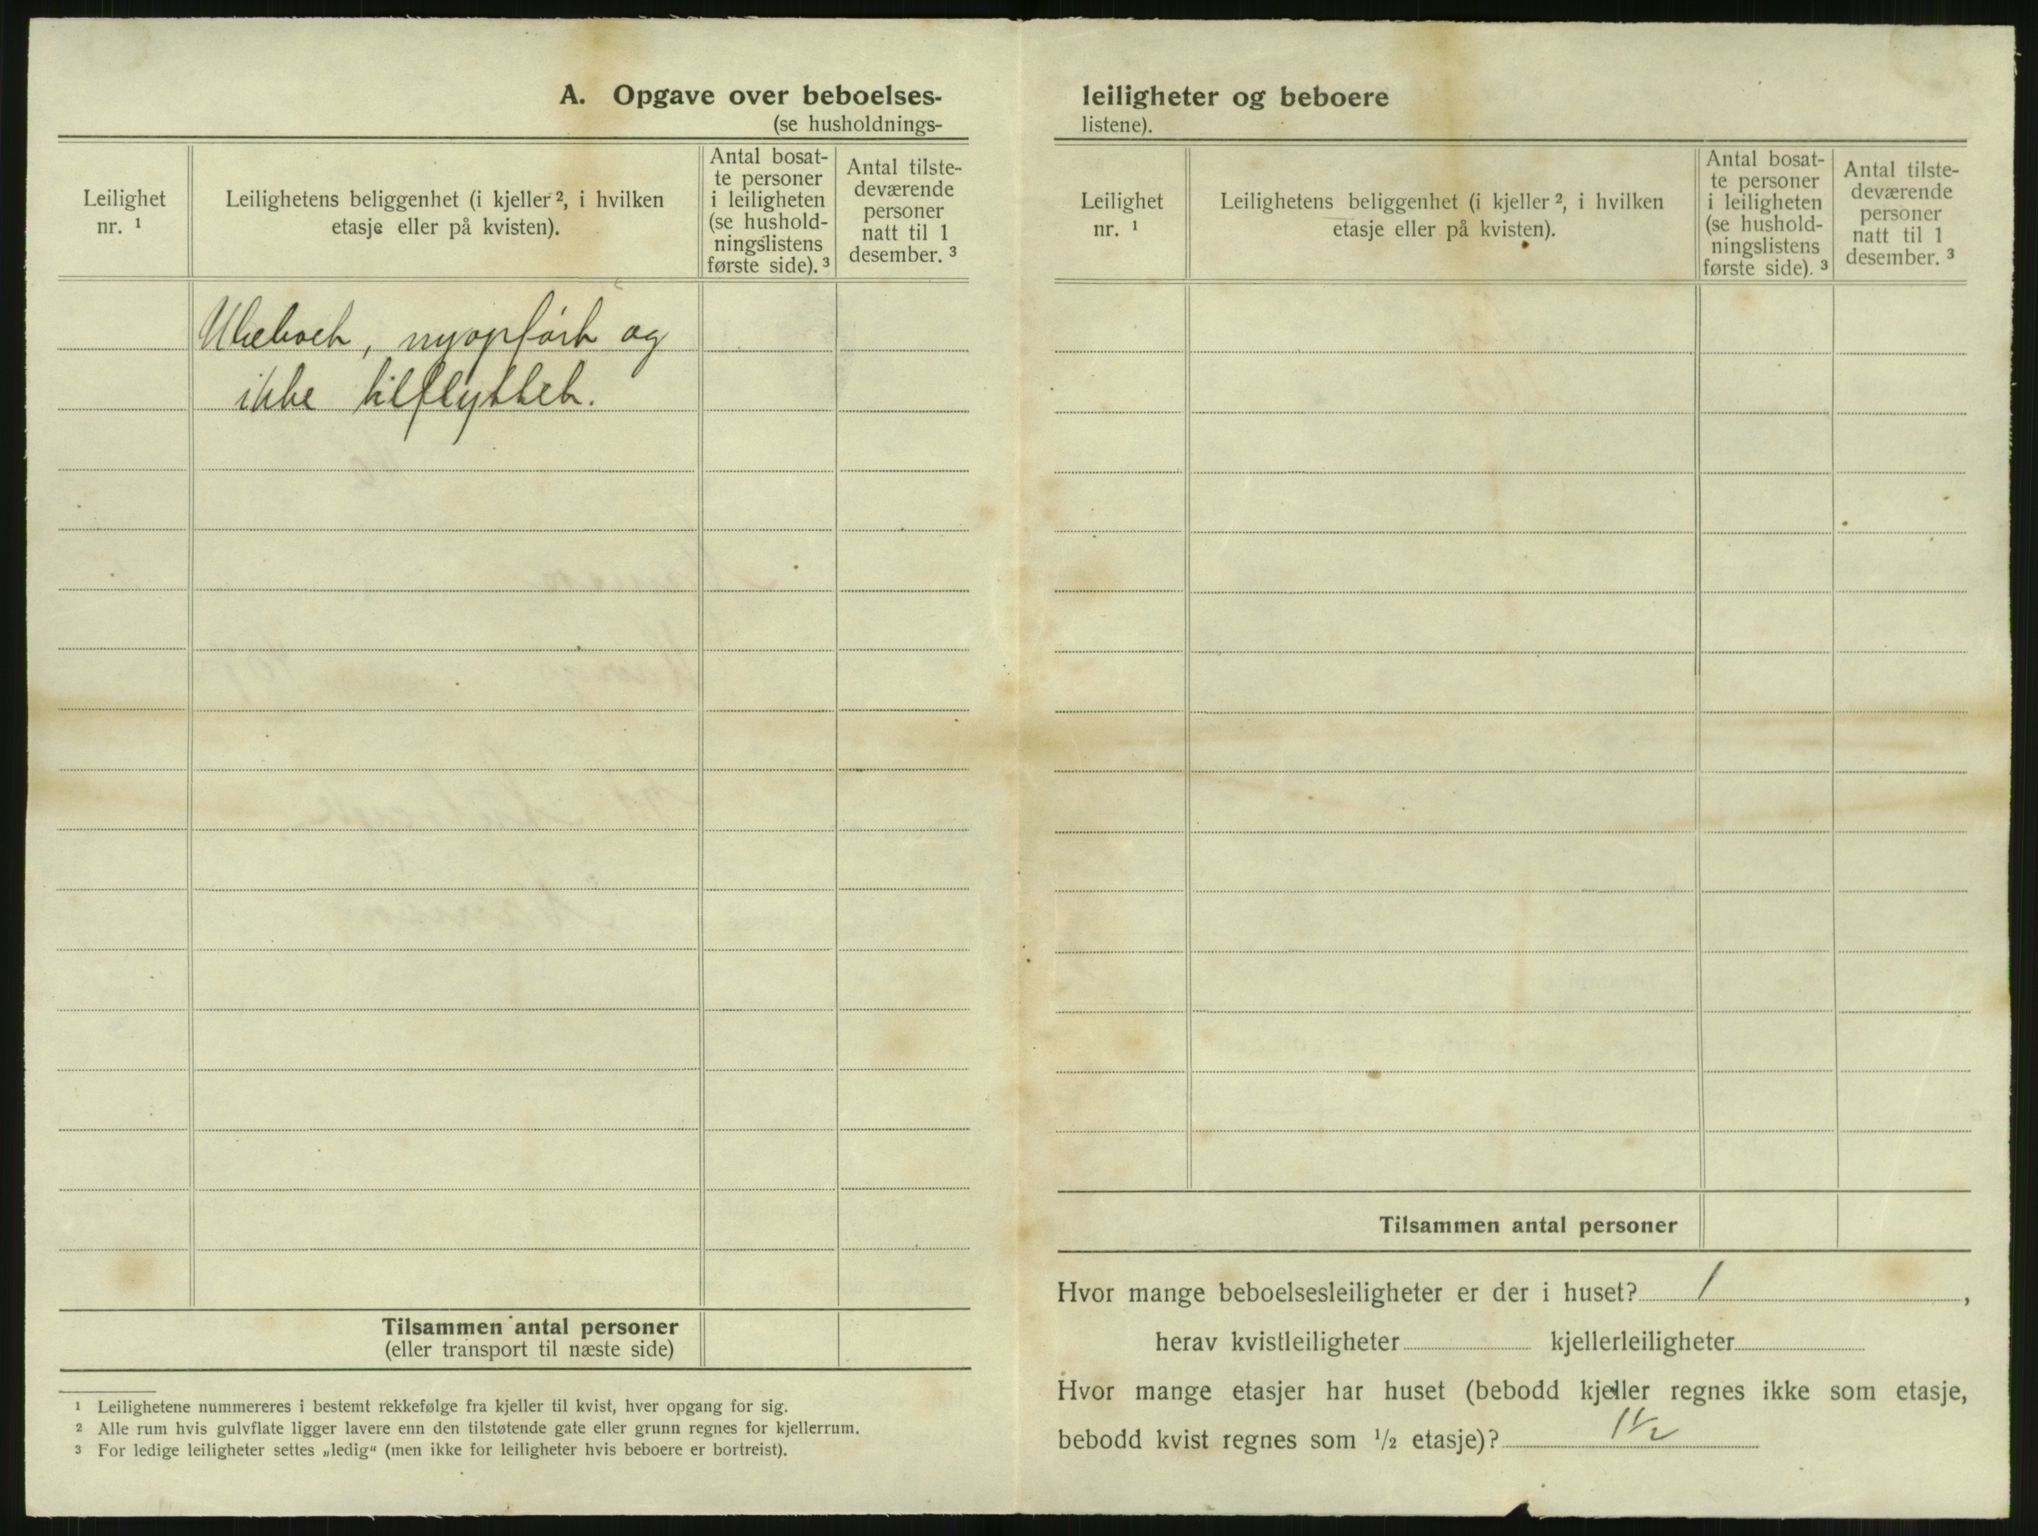 A. Opgave over beboelses-
(se husholdnings-
Leilighet
nr. ¹
Leilighetens beliggenhet (i kjeller ², i hvilken
etasje eller på kvisten).
Antal bosat-
te personer
i leiligheten
(se hushold-
ningslistens
første side). ³
Antal tilste-
deværende
personer
natt til 1
desember. ³
Ubeboet, nyopført og
ikke tilflyttet.
Tilsammen antal personer
(eller transport til næste side)
¹ Leilighetene nummereres i bestemt rekkefølge fra kjeller til kvist, hver opgang for sig.
² Alle rum hvis gulvflate ligger lavere enn den tilstøtende gate eller grunn regnes for kjellerrum.
³ For ledige leiligheter settes „ledig“ (men ikke for leiligheter hvis beboere er bortreist).
leiligheter og beboere
listene).
Leilighet
nr. ¹
Leilighetens beliggenhet (i kjeller ², i hvilken
etasje eller på kvisten).
Antal bosat-
te personer
i leiligheten
(se hushold-
ningslistens
første side). ³
Antal tilste-
deværende
personer
natt til 1
desember. ³
Tilsammen antal personer
Hvor mange beboelsesleiligheter er der i huset? 1,
herav kvistleiligheter kjellerleiligheter
Hvor mange etasjer har huset (bebodd kjeller regnes ikke som etasje,
bebodd kvist regnes som ½ etasje)? 1½